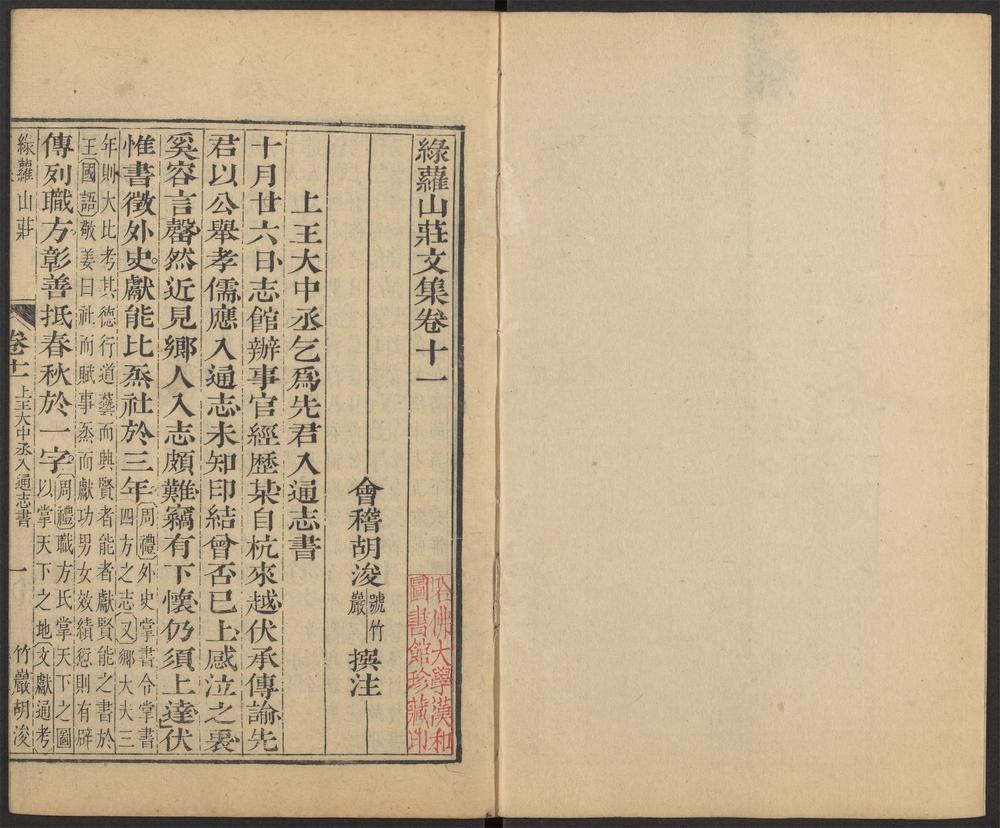 綠蘿山莊文集卷十一
哈佛大學漢和
圖書館珍藏印
會稽胡浚號竹巖撰注
上王大中丞乞爲先君入通志書
十月廿六日志館辦事官經歷某自杭來越伏承傳諭先
君以公舉孝儒應入通志未知印結曾否已上感泣之衷
奚容言罄然近見鄉人入志頗難竊有下懷仍須上達伏
惟書徵外史獻能比烝社於三年周禮外史掌書令掌書四方之志又鄉大夫三
年則大比考其德行道藝而興賢者能者獻賢能之書於
王國語敬姜曰社而賦事烝而獻功男女效績愆則有辟
傳列職方彰善抵春秋於一字周禮職方氏掌天下之圖以掌天下之地文獻通考
綠蘿山莊 卷十一 上王大中丞入通志書 一 竹巖胡浚